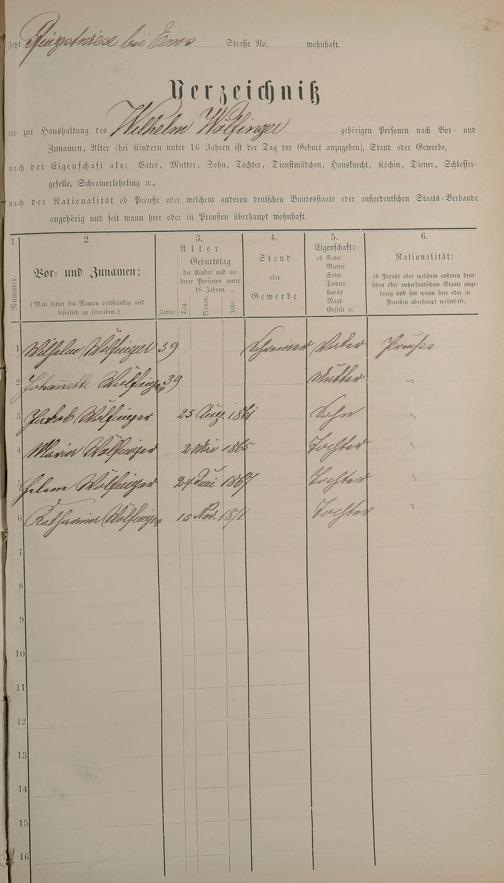 Jetzt Pfingstwiese bei Ems Straße No. wohnhaft.
Verzeichniß
der zur Haushaltung des Wilhelm Wölfinger gehörigen Personen nach Vor- und
Zunamen, Alter (bei Kindern unter 16 Jahren ist der Tag der Geburt anzugeben), Stand oder Gewerbe,
nach der Eigenschaft als: Vater, Mutter, Sohn, Tochter, Dienstmädchen, Hausknecht, Köchin, Diener, Schlosser-
geselle, Schreinerlehrling ꝛc.,
nach der Nationalität ob Preuße oder welchem anderen deutschen Bundesstaate oder außerdeutschen Staats-Verbande
angehörig und seit wann hier oder in Preußen überhaupt wohnhaft.
1. 2. 3. 4. 5. 6.
Nummer.
Vor- und Zunamen:
(Man bittet die Namen vollständig und
leserlich zu schreiben.)
Alter
Geburtstag
der Kinder und an-
derer Personen unter
16 Jahren.
Jahre. Tag. Monat. Jahr.
Stand
oder
Gewerbe.
Eigenschaft:
ob Vater
Mutter
Sohn
Tochter
Knecht
Magd
Geselle u.
Nationalität:
ob Preuße oder welchem anderen deut-
schen oder außerdeutschen Staate ange-
hörig und seit wann hier oder in
Preußen überhaupt wohnhaft.
1 Wilhelm Wölfinger 39 Schreiner Vater Preuße
2 Johannette Wölfinger 39 Mutter "
3 Jakob Wölfinger 25 Aug. 1861 Sohn "
4 Maria Wölfinger 2 Mai 1865 Tochter "
5 Helene Wölfinger 24 Juni 1867 Tochter "
6 Katharina Wölfinger 15 Nov. 1871 Tochter "
7
8
9
10
11
12
13
14
15
16